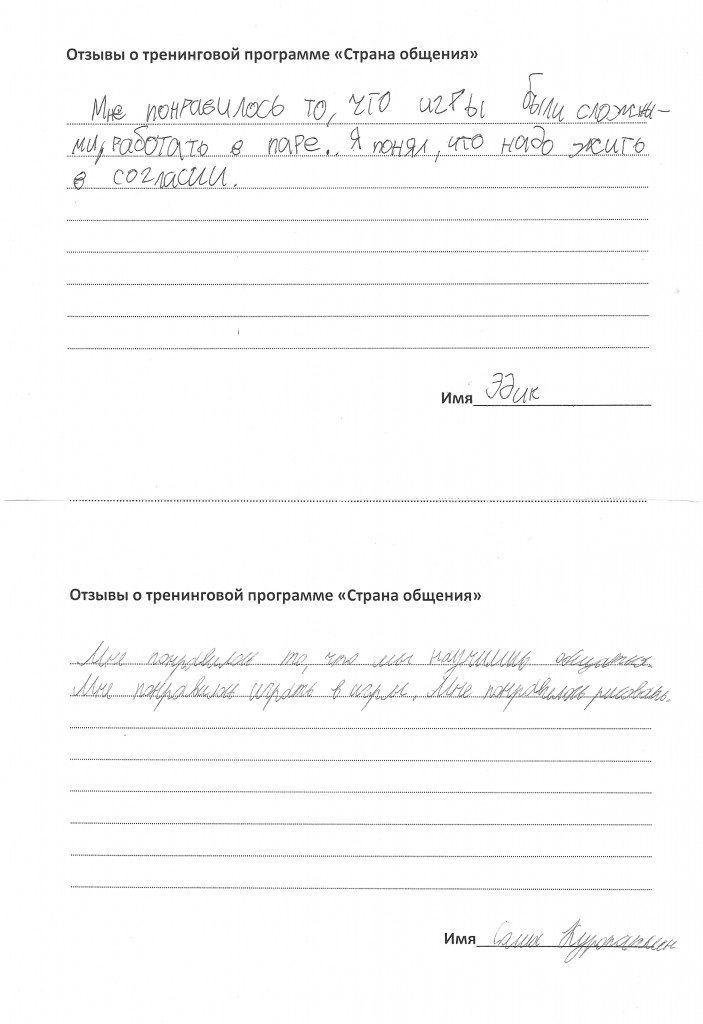 Отзывы о тренинговой программе «Страна общения»
Мне понравилось то, что игры были сложны-
ми, работать в паре.. Я понял, что надо жить
в согласии.
Имя Эдик
Отзывы о тренинговой программе «Страна общения»
Мне понравилось то, что мы научились общаться.
Мне понравилось играть в игры. Мне понравилось рисовать.
Имя